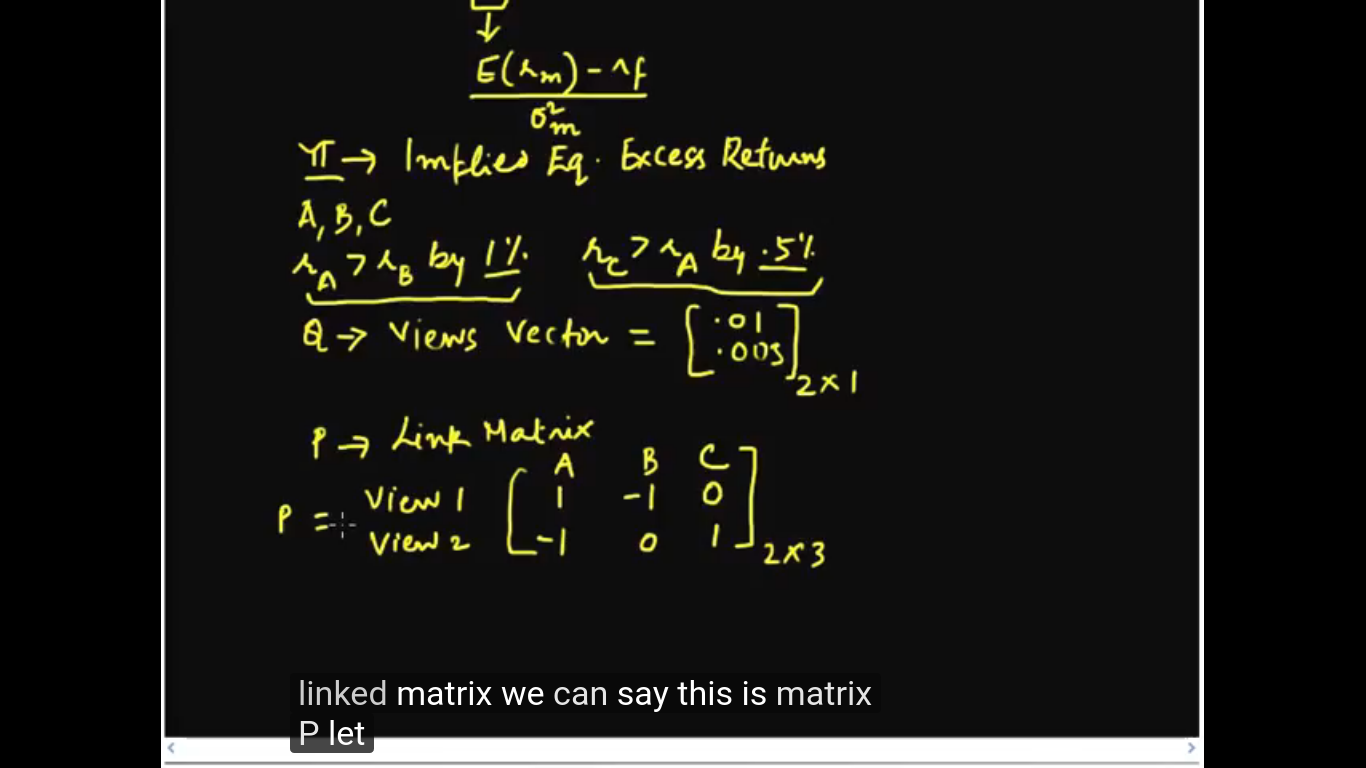 E(rm) - rf
σ²m
π → Implied Eq. Excess Returns
A, B, C
rA > rB by 1% rC > rA by .5%
Q → Views Vector = [.01 .005] 2×1
P → Link Matrix
A B C
P = View 1 [1 -1 0
View 2 -1 0 1] 2×3
linked matrix we can say this is matrix
P let